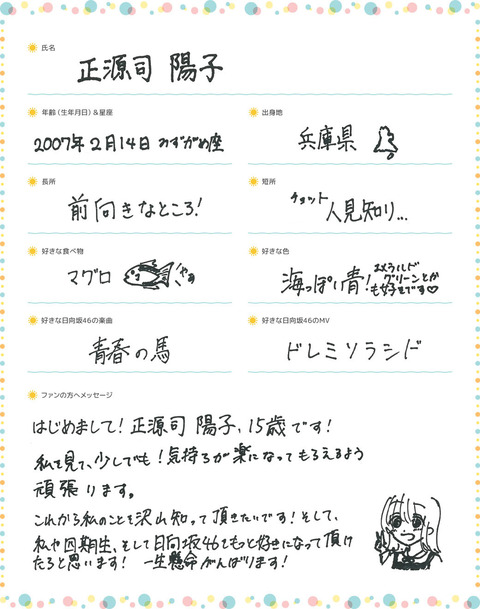 氏名
正源司 陽子
年齢(生年月日)&星座
2007年2月14日 みずがめ座
出身地
兵庫県
長所
前向きなところ!
短所
チョット人見知り...
好きな食べ物
マグロ
好きな色
海っぽい青! エメラルド
グリーンとか
も好きです♡
好きな日向坂46の楽曲
青春の馬
好きな日向坂46のMV
ドレミソラシド
ファンの方へメッセージ
はじめまして! 正源司 陽子、15歳です!
私を見て、少しでも!気持ちが楽になってもらえるよう
頑張ります。
これから私のことを沢山知って頂きたいです!そして、
私や四期生、そして日向坂46をもっと好きになって頂け
たらと思います! 一生懸命がんばります!